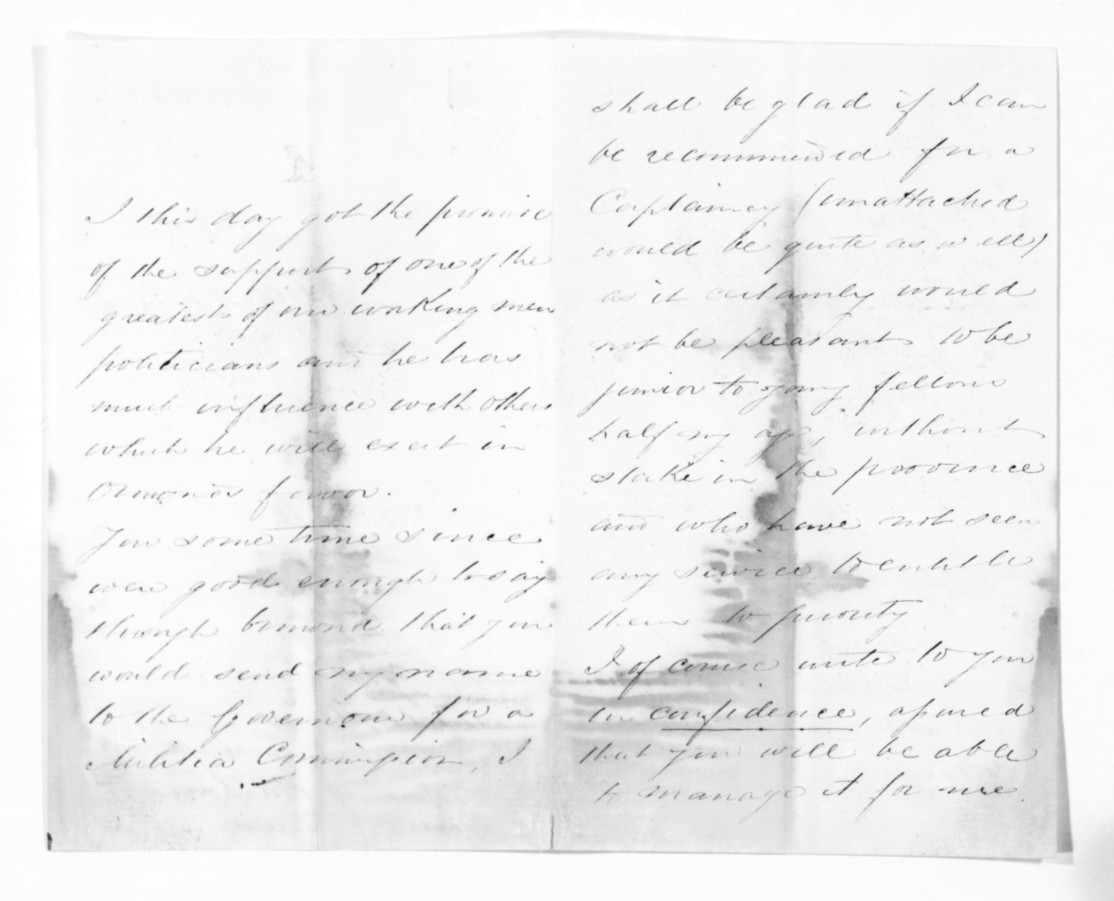 I this day got the promise
of the support of one of the
greatest of our working men
politicians and he has
much influence with others
which he will exert in
Ormond's favor.
You some time since
were good enough to say
through Ormond that you
would send my name
to the Governour for a
Militia Commission, I
shall be glad if I can
be recommended for a
Captaincy (unattached
would be quite as well)
as it certainly would
not be pleasant to be
junior to young fellows
half my age, without
stake in the province
and who have not seen
any service to entitle
them to priority
I of course write to you
in confidence, assured
that you will be able
to manage it for me.